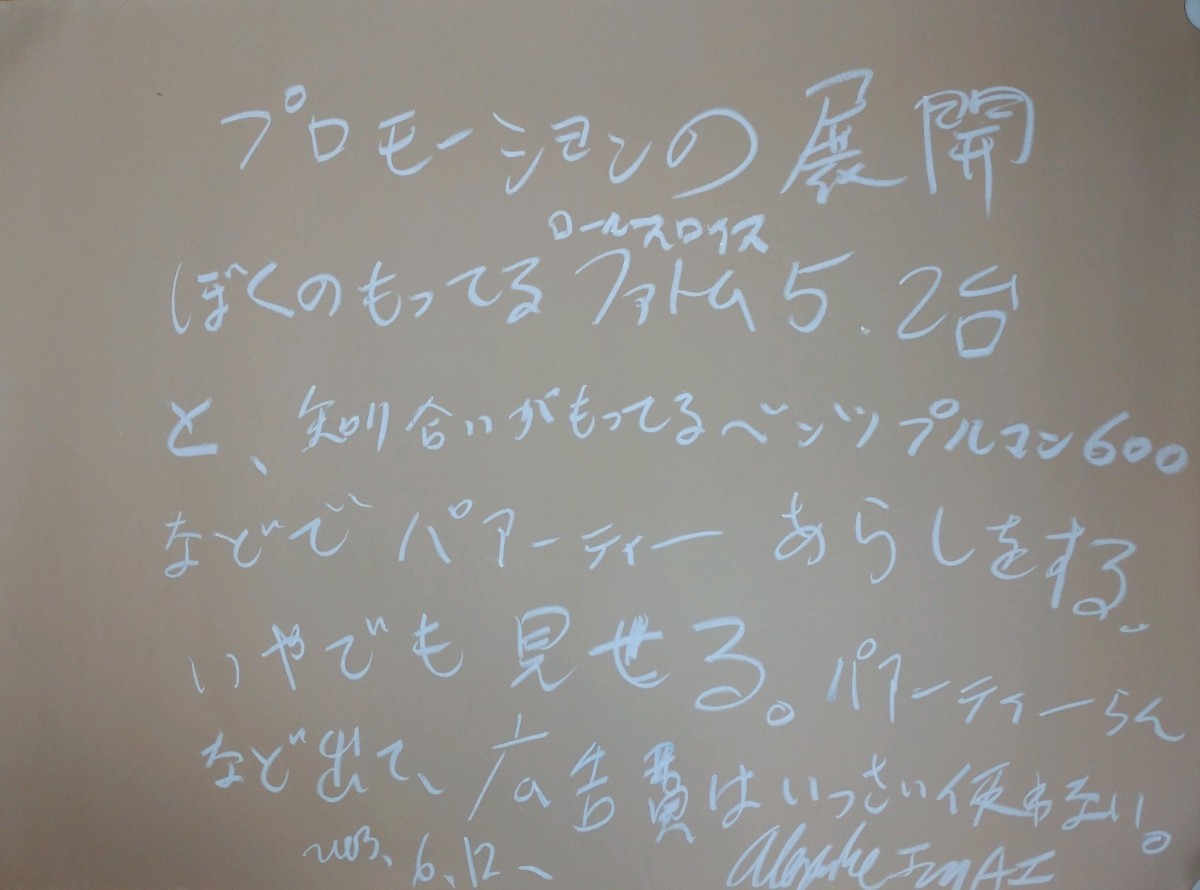 プロモーションの展開
ロールスロイス
ぼくのもってるファトム5.2台
と、知り合いがもってるベンツプルマン600
などでパアーティーあらしをする。
いやでも見せる。パアーティーらん
など出て、広告費はいっさい使わない。
2003.6.12、